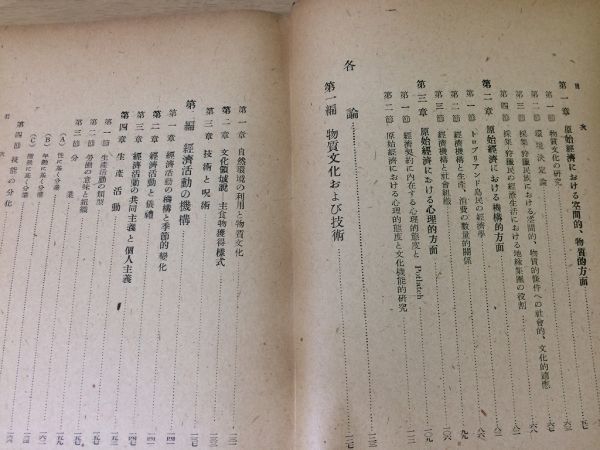 目次
第一章 原始經濟における空間的、物質的方面
第一節 物質文化の研究
第二節 環境決定論
第三節 採集・狩獵民族における空間的、物質的條件への社會的、文化的適應
第四節 採集・狩獵民の經濟生活における地緣集團の役割
第二章 原始經濟における機構的方面
第一節 トロブリアンド島民の經濟學
第二節 經濟機構と生産、消費の數量的關係
第三節 經濟機構と社會組織
第三章 原始經濟における心理的方面
第一節 經濟契約に内在する心理的態度と Potlatch
第二節 原始經濟における心理的態度と文化機能的研究
各論
第一編 物質文化および技術
第一章 自然環境の利用と物質文化
第二章 文化領域說 主食物獲得樣式
第三章 技術と呪術
第二編 經濟活動の機構
第一章 經濟活動の機構と季節的變化
第二章 經濟活動と儀禮
第三章 經濟活動の共同主義と個人主義
第四章 生産活動
第一節 生産活動の類型
第二節 勞働の意味と組織
第三節 分業
(A) 性に基く分業
(B) 年齡に基く分業
(C) 階級に基く分業
第四節 技能の分化
目次